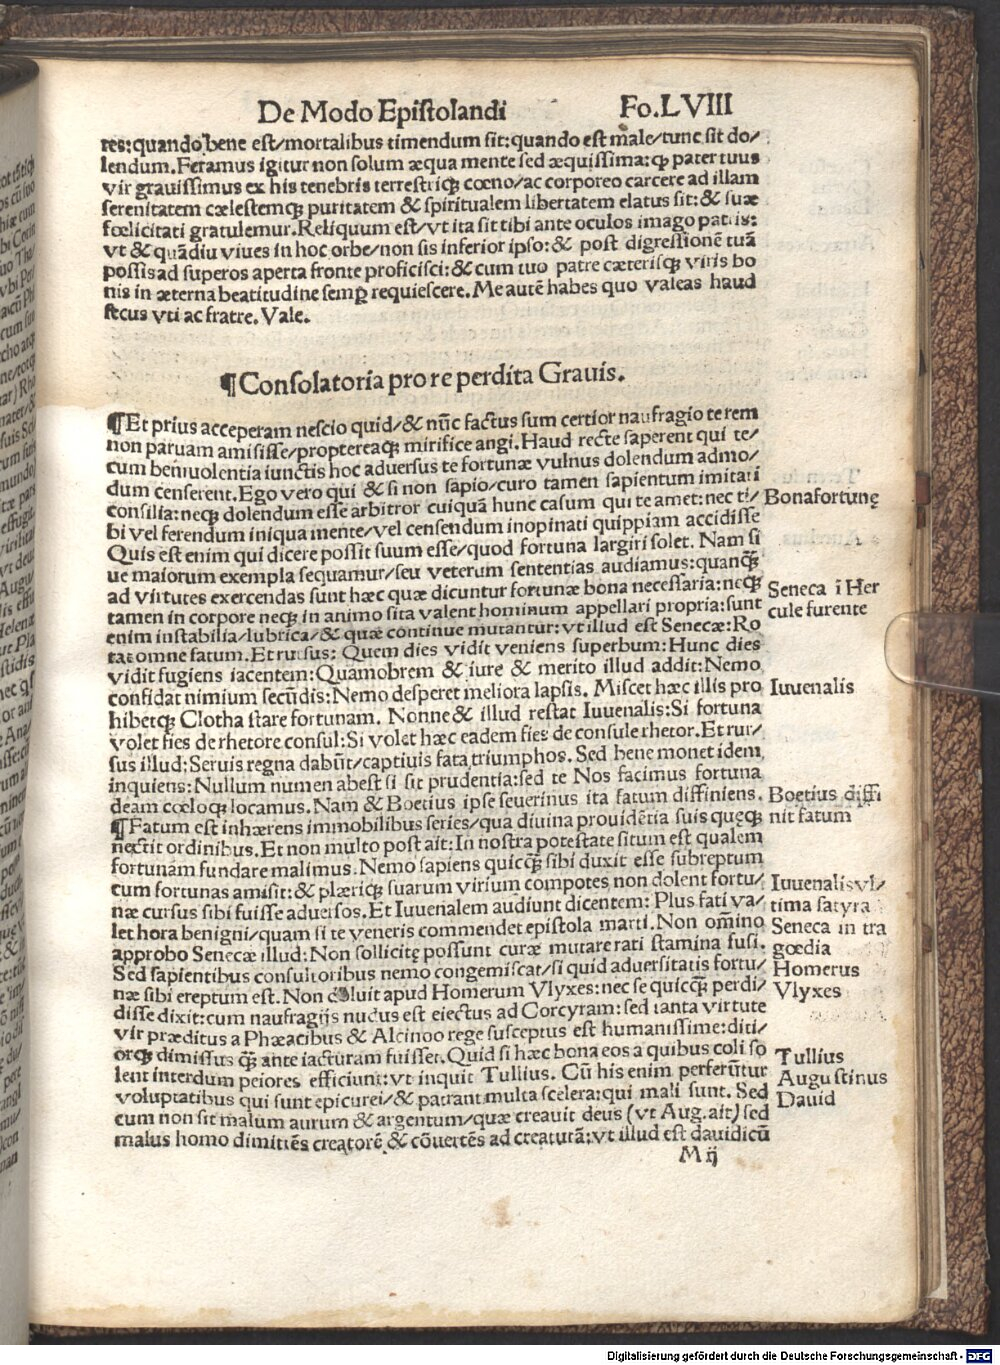 De Modo Epistolandi Fo.LVIII
res:quando bene est/mortalibus timendum sit:quando est male/tunc sit do/
lendum.Feramus igitur non solum æqua mente sed æquissima:ꝙ pater tuus
vir grauissimus ex his tenebris terrestriqꝫ cœno/ac corporeo carcere ad illam
serenitatem cælestemqꝫ puritatem & spiritualem libertatem elatus sit:& suæ
fœlicitati gratulemur.Reliquum est/vt ita sit tibi ante oculos imago patris:
vt & quãdiu viues in hoc orbe/non sis inferior ipso:& post digressionẽ tuã
possis ad superos aperta fronte proficisci:& cum tuo patre cæterisqꝫ viris bo
nis in æterna beatitudine semꝑ requiescere.Me autẽ habes quo valeas haud
secus vti ac fratre.Vale.
¶Consolatoria pro re perdita Grauis.
¶Et prius acceperam nescio quid/& nũc factus sum certior naufragio te rem
non paruam amisisse/proptereaqꝫ mirifice angi.Haud recte saperent qui te/
cum beniuolentia iunctis hoc aduersus te fortunæ vulnus dolendum admo/
dum censerent.Ego vero qui & si non sapio/curo tamen sapientum imitari
consilia:neqꝫ dolendum esse arbitror cuiquã hunc casum qui te amet:nec ti/
bi vel ferendum iniqua mente/vel censendum inopinati quippiam accidisse
Quis est enim qui dicere possit suum esse/quod fortuna largiri solet. Nam si
ue maiorum exempla sequamur/seu veterum sententias audiamus:quanqꝫ̃
ad virtutes exercendas sunt hæc quæ dicuntur fortunæ bona necessaria:neqꝫ
tamen in corpore neqꝫ in animo sita valent hominum appellari propria:sunt
enim instabilia/lubrica/& quæ continue mutantur:vt illud est Senecæ:Ro
tat omne fatum.Et rursus: Quem dies vidit veniens superbum:Hunc dies
vidit fugiens iacentem:Quamobrem & iure & merito illud addit:Nemo
confidat nimium secũdis:Nemo desperet meliora lapsis. Miscet hæc illis pro
hibetqꝫ Clotha stare fortunam. Nonne & illud restat Iuuenalis:Si fortuna
volet fies de rhetore consul:Si volet hæc eadem fies de consule rhetor.Et rur/
sus illud:Seruis regna dabũt/captiuis fata triumphos. Sed bene monet idem
inquiens:Nullum numen abest si sit prudentia:sed te Nos facimus fortuna
deam cœloqꝫ locamus.Nam & Boetius ipse seuerinus ita fatum diffiniens.
¶Fatum est inhærens immobilibus series/qua diuina prouidẽtia suis queqꝫ
nectit ordinibus.Et non multo post ait:In nostra potestate situm est qualem
fortunam fundare malimus.Nemo sapiens quicqꝫ̃ sibi duxit esse subreptum
cum fortunas amisit:& plæriqꝫ suarum virium compotes non dolent fortu/
næ cursus sibi fuisse aduersos.Et Iuuenalem audiunt dicentem:Plus fati va/
let hora benigni/quam si te veneris commendet epistola marti.Non om̃ino
approbo Senecæ illud:Non sollicitę possunt curæ mutare rati stamina fusi.
Sed sapientibus consultoribus nemo congemiscat/si quid aduersitatis fortu/
næ sibi ereptum est.Non doluit apud Homerum Vlyxes:nec se quicqꝫ̃ perdi/
disse dixit:cum naufragijs nudus est eiectus ad Corcyram:sed tanta virtute
vir præditus a Phæacibus & Alcinoo rege susceptus est humanissime:diti/
orqꝫ dimissus qꝫ̃ ante iacturam fuisset.Quid si hæc bona eos a quibus coli so
lent interdum peiores efficiunt:vt inquit Tullius. Cũ his enim perferũtur
voluptatibus qui sunt epicurei/& patrant multa scelera:qui mali sunt. Sed
cum non sit malum aurum & argentum/quæ creauit deus (vt Aug.ait) sed
malus homo dimittẽs creatorẽ & cõuertẽs ad creaturã:vt illud est dauidicũ
M ij
Bonafortunę
Seneca ĩ Her
cule furente
Iuuenalis
Boetius diffi
nit fatum
Iuuenalis vl/
tima satyra
Seneca in tra
gœdia
Homerus
Vlyxes
Tullius
Augustinus
Dauid
Digitalisierung gefördert durch die Deutsche Forschungsgemeinschaft - DFG